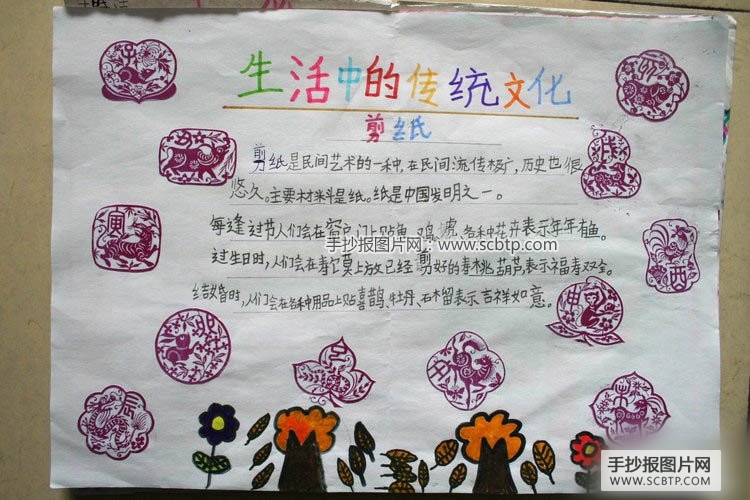 生活中的传统文化
剪纸
剪纸是民间艺术的一种,在民间流传极广,历史也很
悠久。主要材料是纸。纸是中国发明之一。
每逢过节人们会在窗户、门上贴鱼、鸡、虎、各种花卉表示年年有鱼。
手抄报图片网:www.scbtp.com
过生日时,人们会在寿馍上放已经剪好的寿桃、葫芦表示福寿双全。
结婚时,人们会在各种用品上贴喜鹊、牡丹、石留表示吉祥如意。
子
丑
寅
卯
辰
戌
酉
申
手抄报图片网
WWW.SCBTP.COM